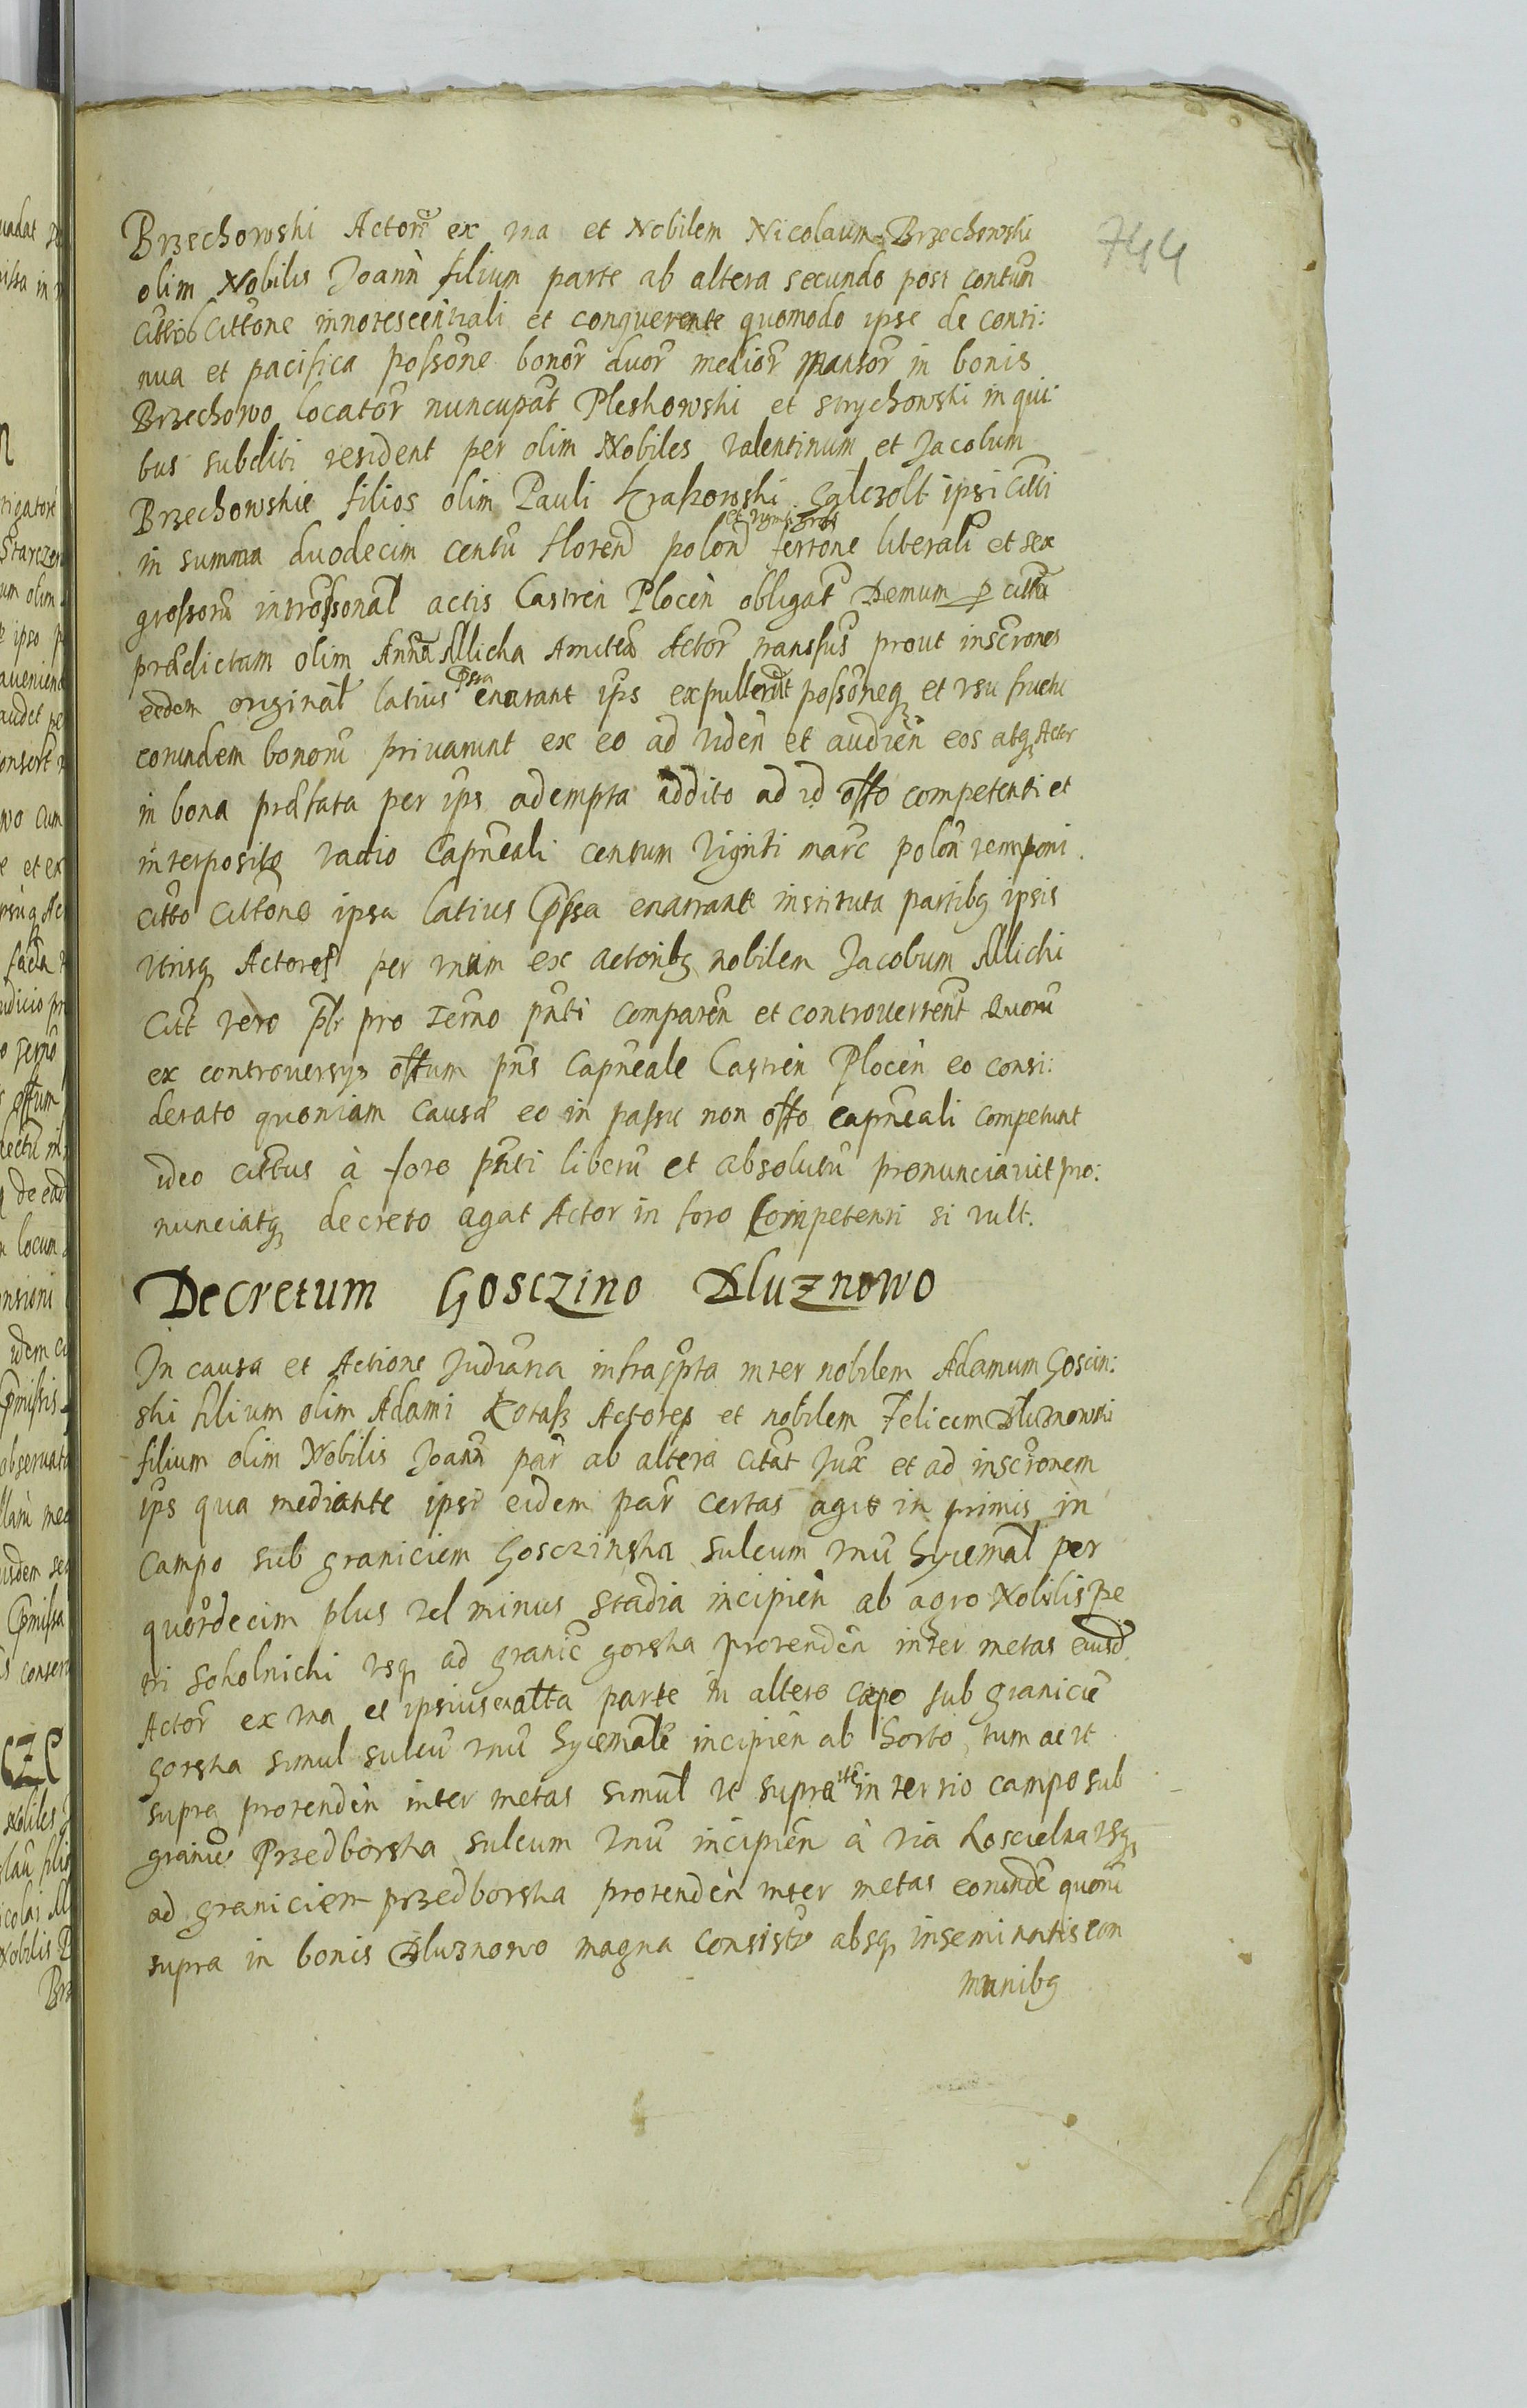 744
Brzechowski Actorē ex vna et Nobilem Nicolaum Brzechowski
olim Nobilis Joann̄ filium parte ab altera secundo post contūm
Cittōne innotescentiali et conquerente quomodo ipse de conti:
nua et pacifica possōne bonor̄ duor̄ medior̄ Mansor̄ in bonis
Brzechowo locator̄ nuncupat̄ Pleskowski et Strychowski in qui:
bus subditi resident per olim Nobiles Valentinum et Jacobum
Brzechowskie filios olim Pauli ipsi
in summa duodecim centū floren̄ polon̄ et viginti gros ferrone literali et sex
grossorū actis Castren̄ Plocen̄ obligat̄ Demum
prædictam olim Annā Mlicka Amitā Actor̄ transfus̄ prout inscrōnes
eædem original̄ latius enarant ips̄ expullerūt possōneq̨ et vsu fructu
eorundem bonorū privarunt ex eo ad viden̄ et audien̄ eos atq̨ Actor
in bona præfata per ips̄ adempta addito ad id offō competenti et
interposito vadio Capn̄eali centum viginti marc̄ polon̄
cittō Cittōne ipsa latius p̄ssa enarrante instituta partibq̨ ipsis
vtrisq̨ Actores per vnum ex actoribq̨ nobilem Jacobum Mlicki
Citt̄ vero pl̄r pro Term̄o pn̄ti comparen̄ et controuertent̄ Quorū
ex controuersijs offm̄ pn̄s Capn̄eale Castren̄ Plocen̄ eo consi:
derato quoniam causæ eo in passu non offō capn̄eali competunt
ideo cittūs à foro pn̄ti liberū et absolutū pronunciavit pro:
nunciatq̨ decreto agat Actor in foro Competenti si vult.
Decretum Gosczino Dluznowo
In causa et Actione Judiāria infrasp̄ta inter nobilem Adamum Goscin:
ski filium olim Adami Kotasz Actores et nobilem Felicem Dluznowski
filium olim Nobilis Joann̄ par̄ ab altera citāt Jux̄ et ad inscrōnem
ips̄ qua mediante ipsi eidem par̄ certas agit in primis in
campo sub graniciem Gosczinska sulcum vnū hyemal̄ per
quōrdecim plus vel minus stadia incipien̄ ab agro Nobilis Pe
tri Sokolnicki vsq̨ ad granic̄ gorska protenden̄ inter metas eiusd̄
Actor̄ ex vna et ipsius ex altta parte in altero cāpo sub granicie͂
gorska simul sulcū vnū hyemalē incipien̄ ab horto tum ac vt
supra protenden̄ inter metas simul̄ vt supra itē in tertio campo sub
granic̄ Przedborska sulcum vnū incipien̄ à via koscielna vsq̨
ad graniciem przedborska protenden̄ inter metas eorundē quorū
supra in bonis Dluznowo magna consist̄ absq̨ inseminatis com
munibq̨